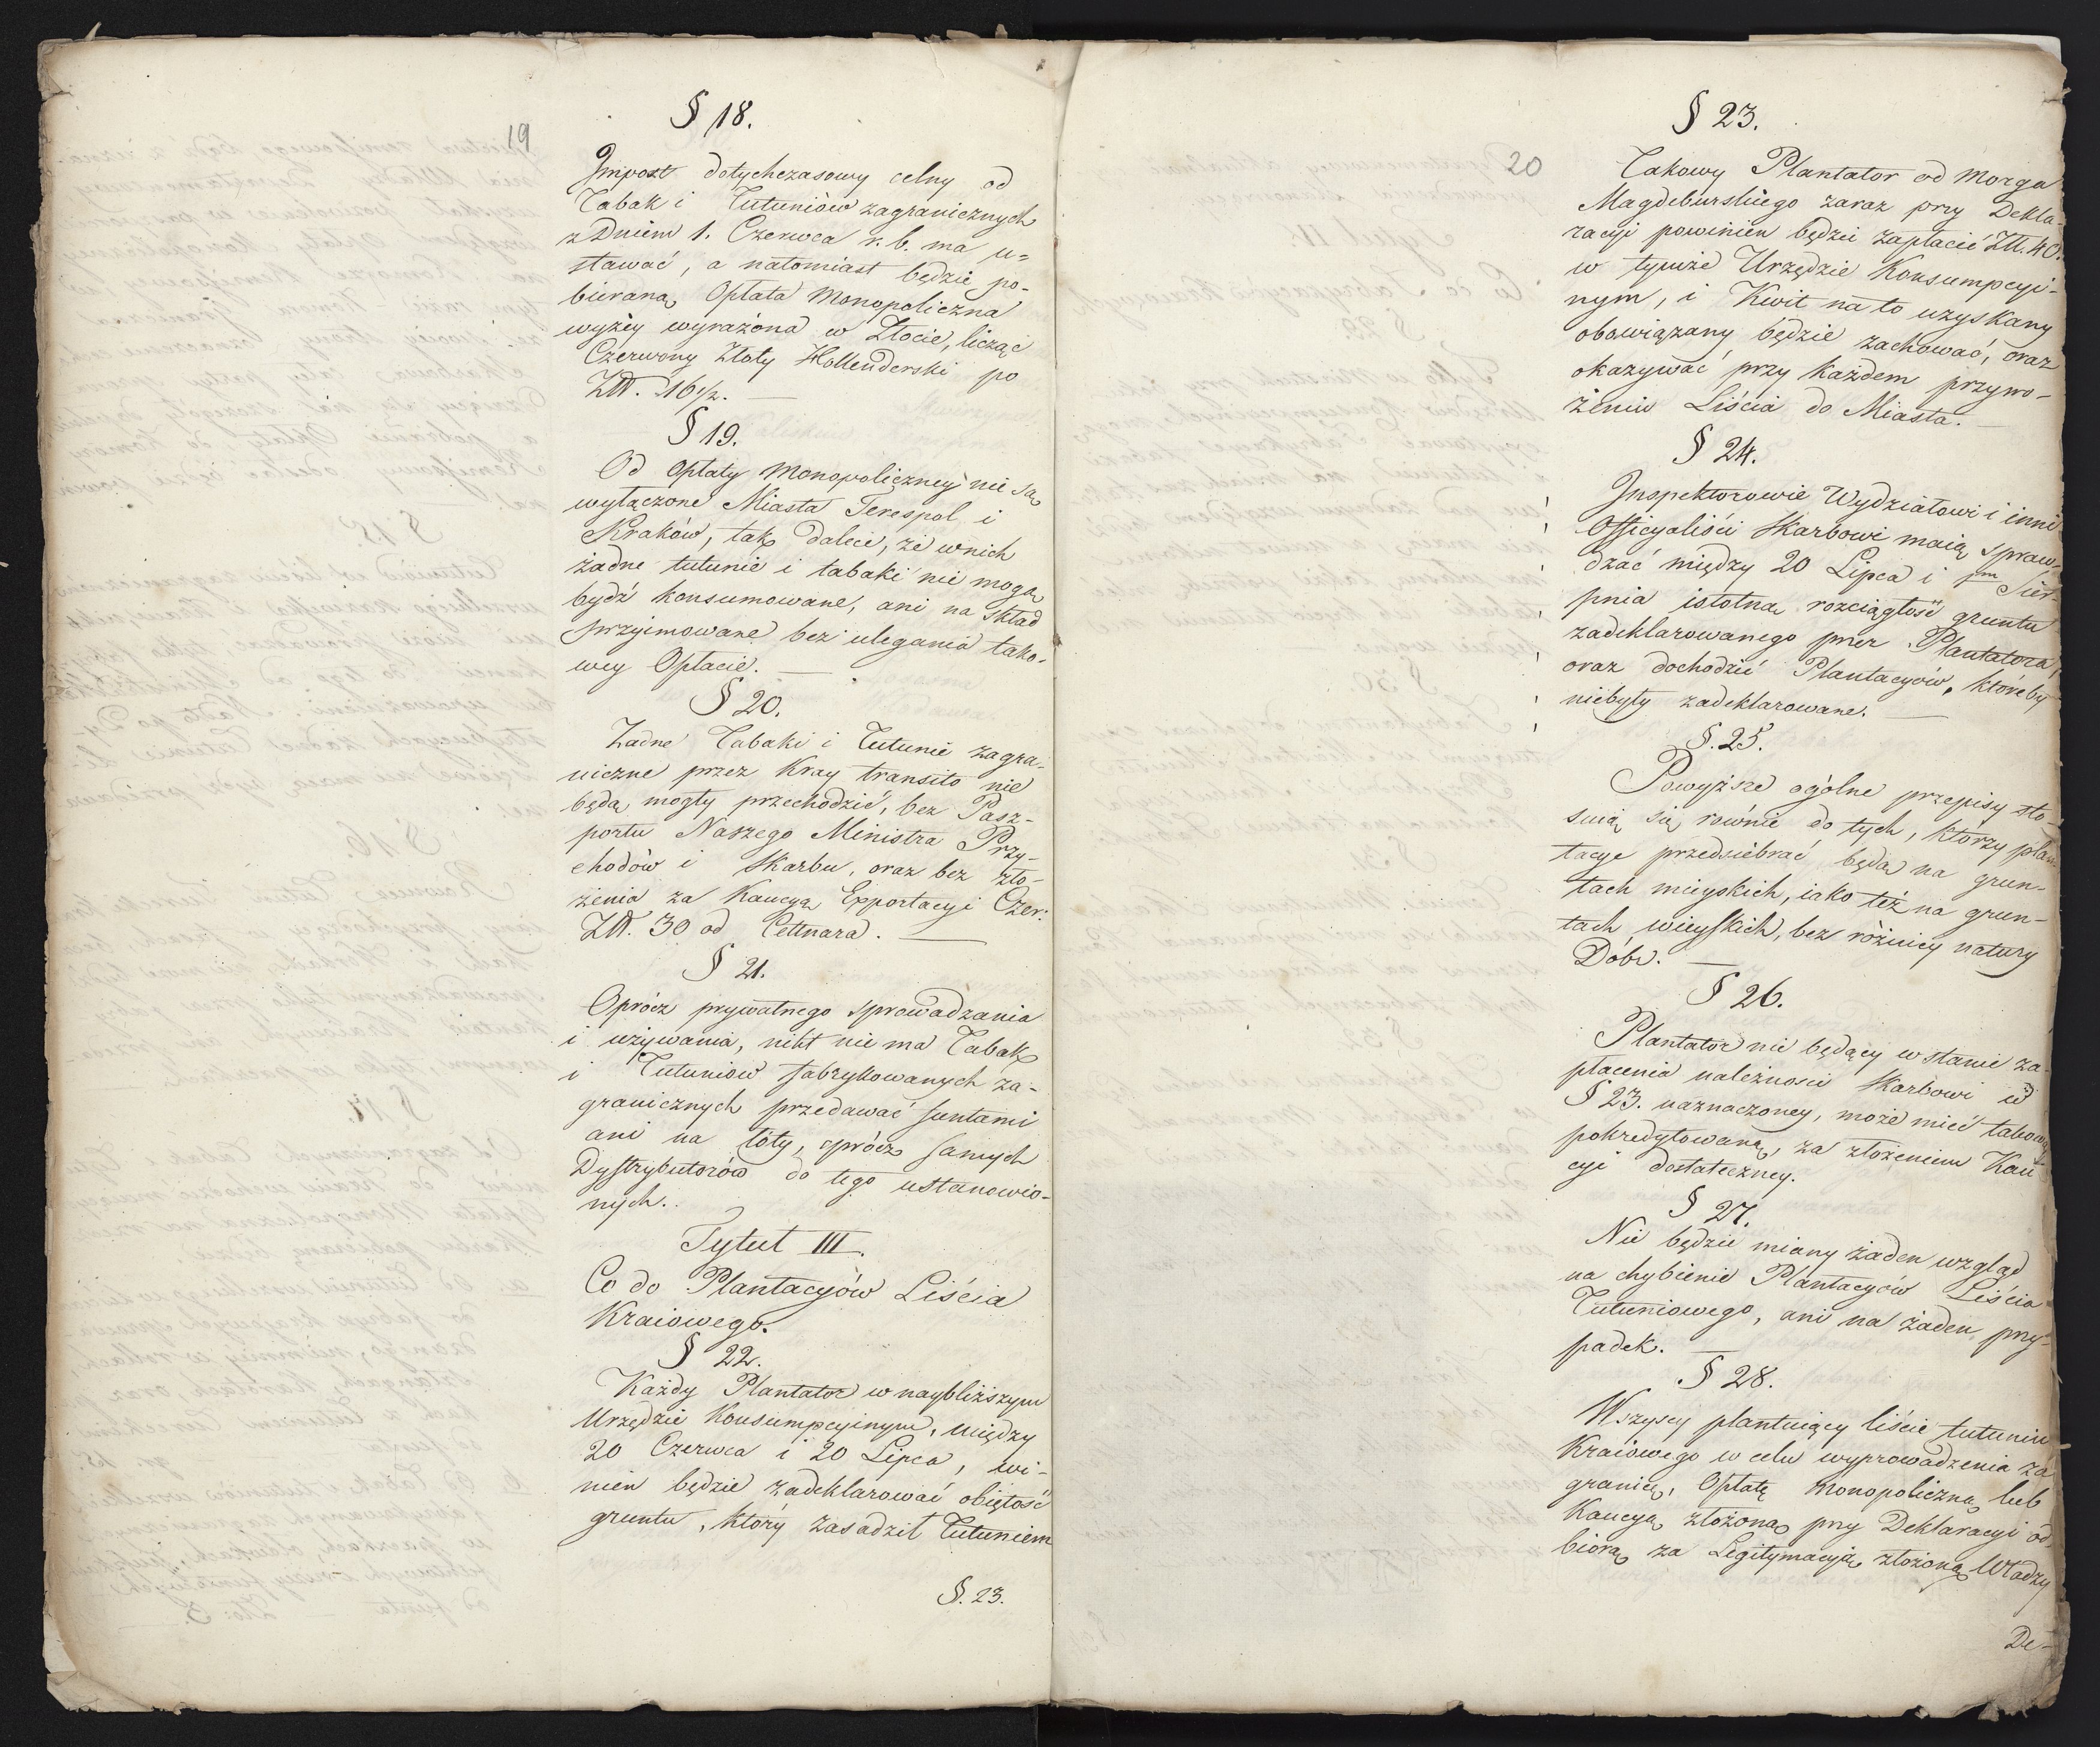 19
§ 18.
Impost dotychczasowy celny od
Tabak i Tutuniów zagranicznych
z Dniem 1. Czerwca r. b. ma u=
stawać, a natomiast będzie po-
bieraną Opłata Monopoliczna
wyżey wyrażona w Złocie, licząc
Czerwony Złoty Hollenderski po
Złt. 16 1/2. —
§ 19.
Od Opłaty Monopoliczney nie są
wyłączone Miasta Terespol i
Kraków, tak dalece, że w nich
żadne tutunie i tabaki nie mogą
bydź konsumowane, ani na skład
przyimowane bez ulegania tako-
wey Opłacie. —
§ 20.
Żadne Tabaki i Tutunie zagra-
niczne przez Kray transito nie
będą mogły przechodzić, bez Pasz-
portu Naszego Ministra Przy-
chodów i Skarbu, oraz bez zło-
żenia za Kaucyą Exportacyi Czer:
Złt. 30 od Cettnara. —
§ 21.
Oprócz prywatnego sprowadzania
i używania, nikt nie ma Tabak
i Tutuniow fabrykowanych za-
granicznych przedawać funtami
ani na łóty, oprócz samych
Dystrybutorów do tego ustanowio-
nych.
Tytuł III.
Co do Plantacyów Liścia
Kraiowego.
§ 22.
Każdy Plantator w naybliższym
Urzędzie Konsumpcyinym, między
20 Czerwca i 20 Lipca, wi-
nien będzie zadeklarować obiętość
gruntu, który zasadził Tutuniem
§. 23.
20
§ 23.
Takowy Plantator od Morga
Magdeburskiego zaraz przy Dekla-
racyi powinien będzie zapłacić Złt. 40.
w tymże Urzędzie Konsumpcyi-
nym, i Kwit na to uzyskany
obowiązany będzie zachować, oraz
okazywać przy każdem przywo-
żeniu Liścia do Miasta. —
§ 24.
Inspektorowie Wydziałowi i inni
Officyaliści Skarbowi maią spraw-
dzać między 20 Lipca i Sier-
pnia istotną rozciągłość gruntu
zadeklarowanego przez Plantatora,
oraz dochodzić Plantacyów, któreby
niebyły zadeklarowane. —
§. 25.
Powyższe ogólne przepisy sto-
suią się równie do tych, którzy plan-
tacye przedsiebrać będą na grun-
tach mieyskich, iako też na grun-
tach wieyskich, bez różnicy natury
Dóbr. —
§ 26.
Plantator nie będący w stanie za-
płacenia należności Skarbowi w
§ 23. naznaczoney, może mieć takową
pokredytowaną, za złożeniem Kau
cyi dostateczney.
§ 27.
Nie będzie miany żaden wzgląd
na chybienie Plantacyów Liścia
Tutuniowego, ani na żaden przy-
padek. —
§ 28.
Wszyscy plantuiący liście tutuniu
Kraiowego w celu wyprowadzenia za
granicę, Opłatę Monopoliczną lub
Kaucyą złożoną przy Deklaracyi od-
biorą za Legitymacyią złożoną Władzy
De-